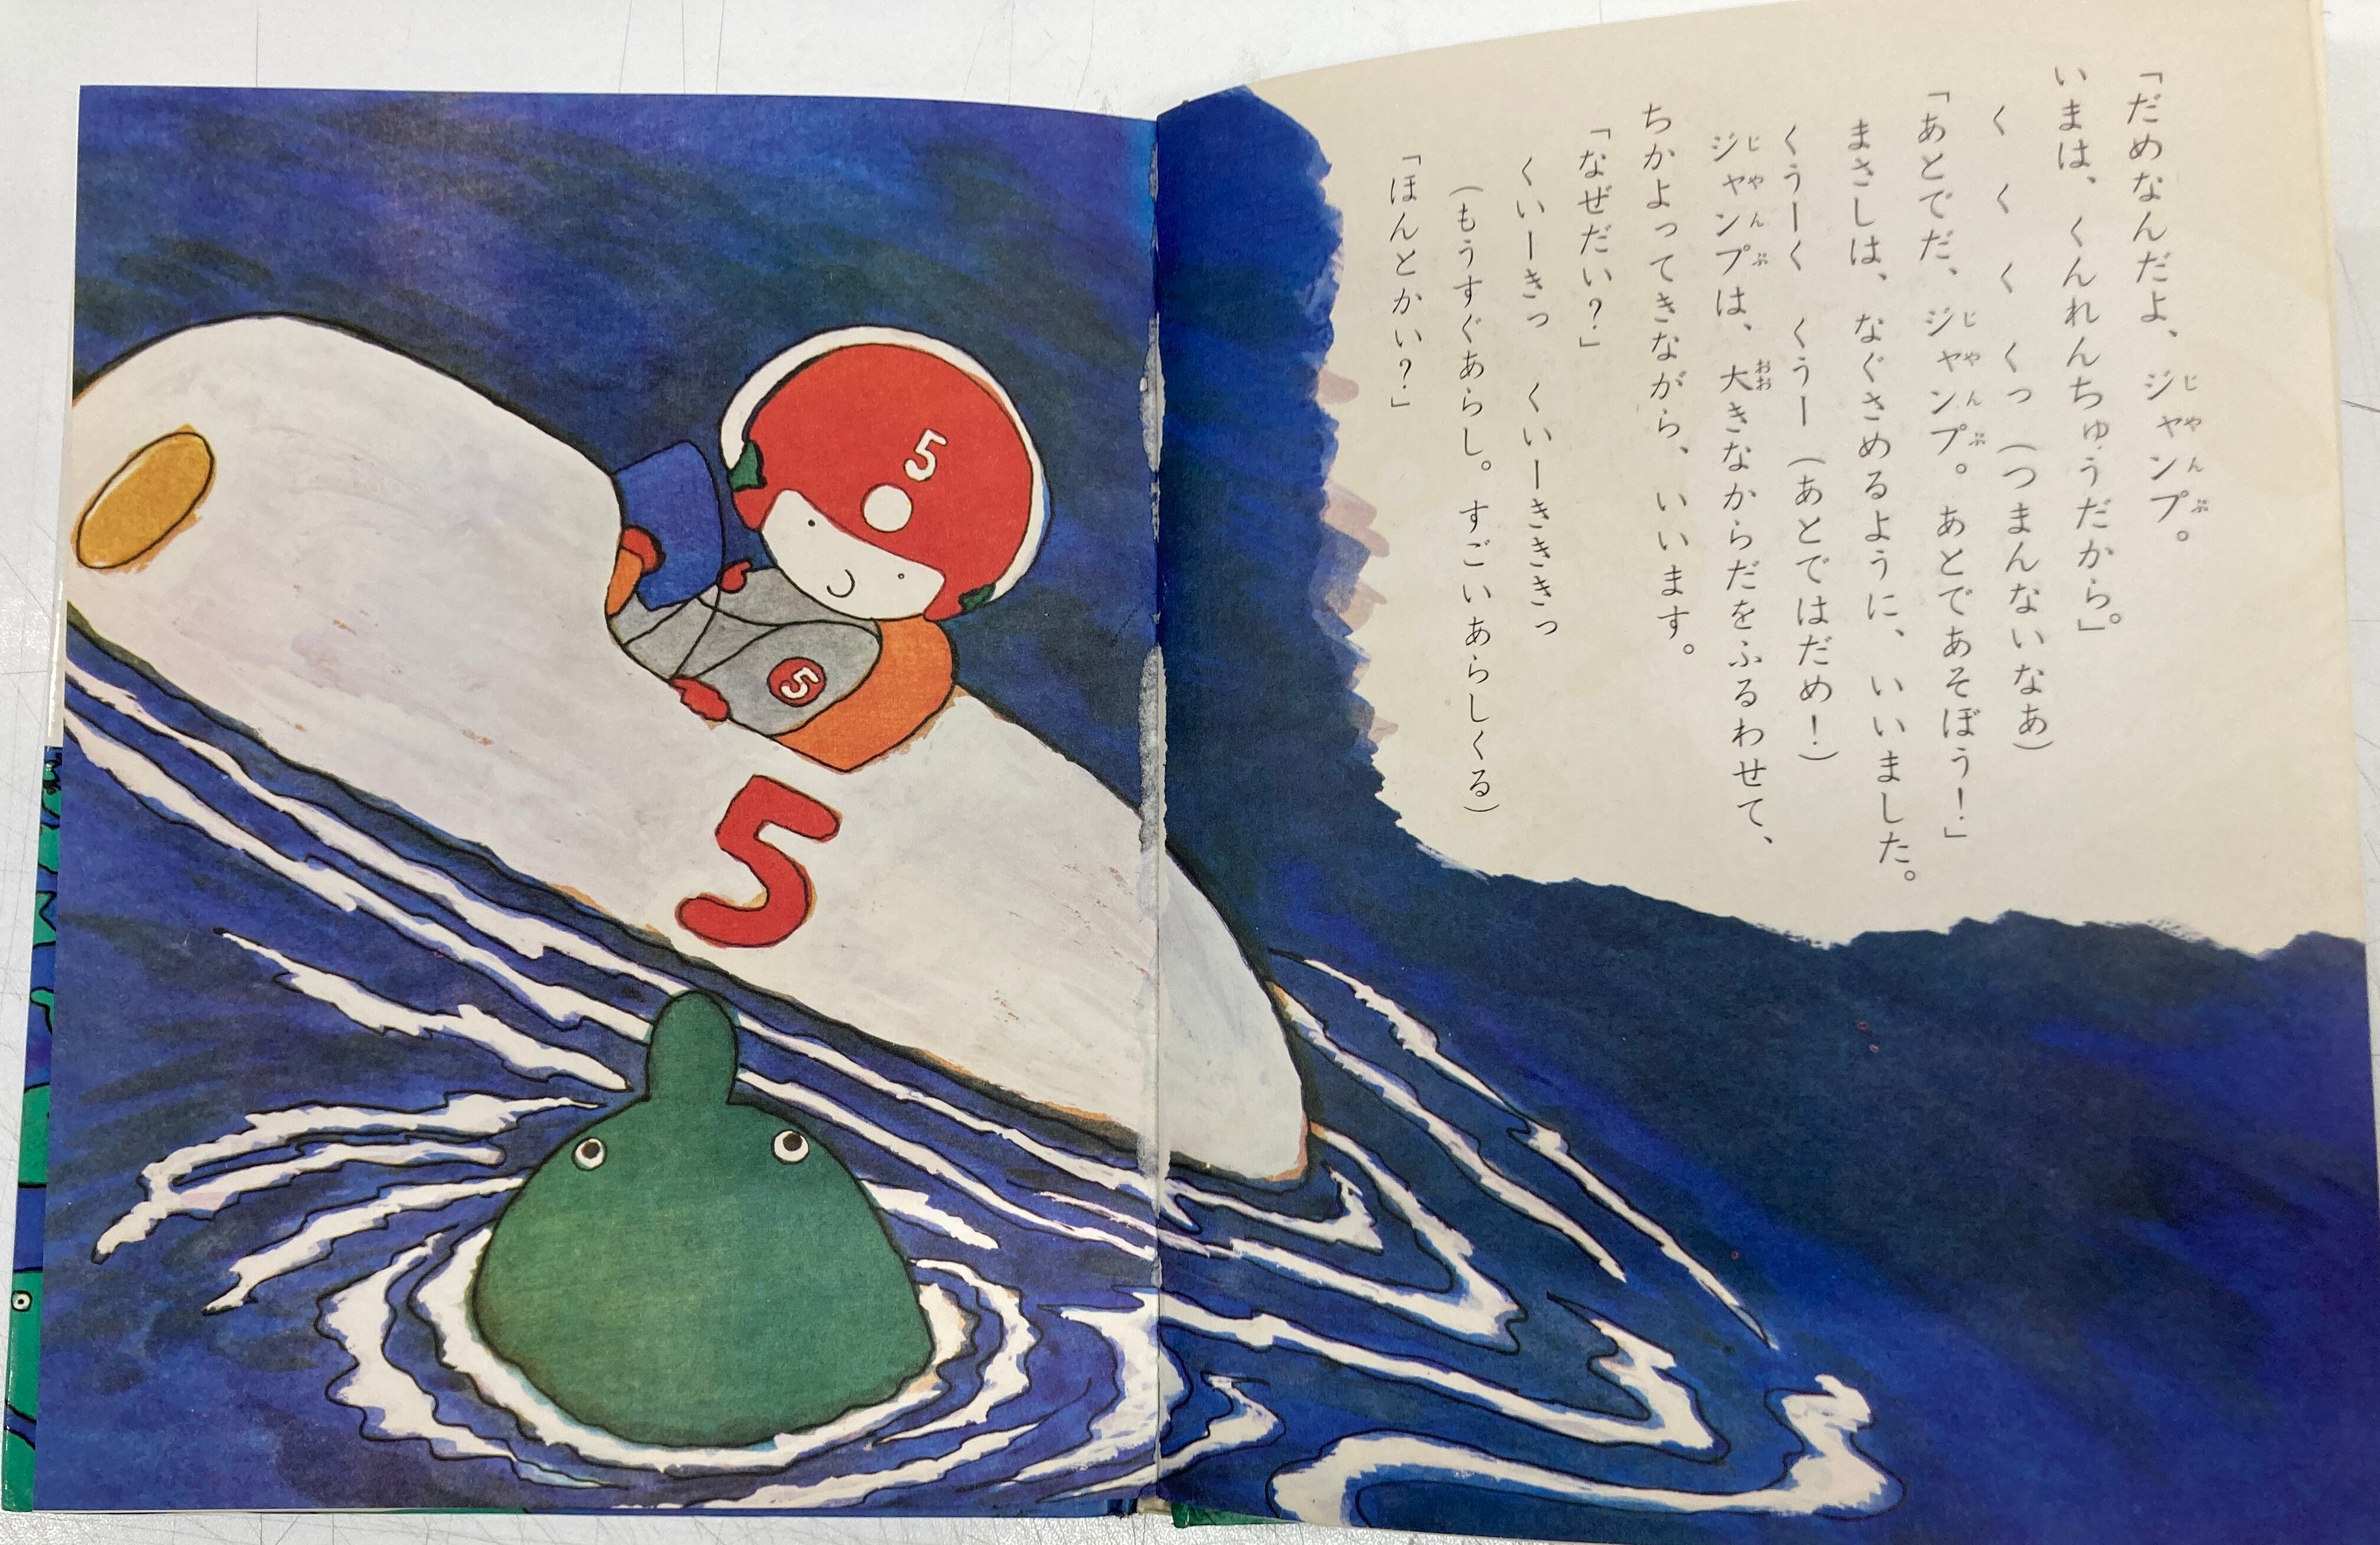 「だめなんだよ、ジャンプ。
いまは、くんれんちゅうだから。」
く　く　く　くっ（つまんないなあ）
「あとでだ、ジャンプ。あとであそぼう！」
まさしは、なぐさめるように、いいました。
くうーく　くうー（あとではだめ！）
ジャンプは、大きなからだをふるわせて、
ちかよってきながら、いいます。
「なぜだい？」
くいーきっ　くいーきききっ
（もうすぐあらし。すごいあらしくる）
「ほんとかい？」
5
5
5